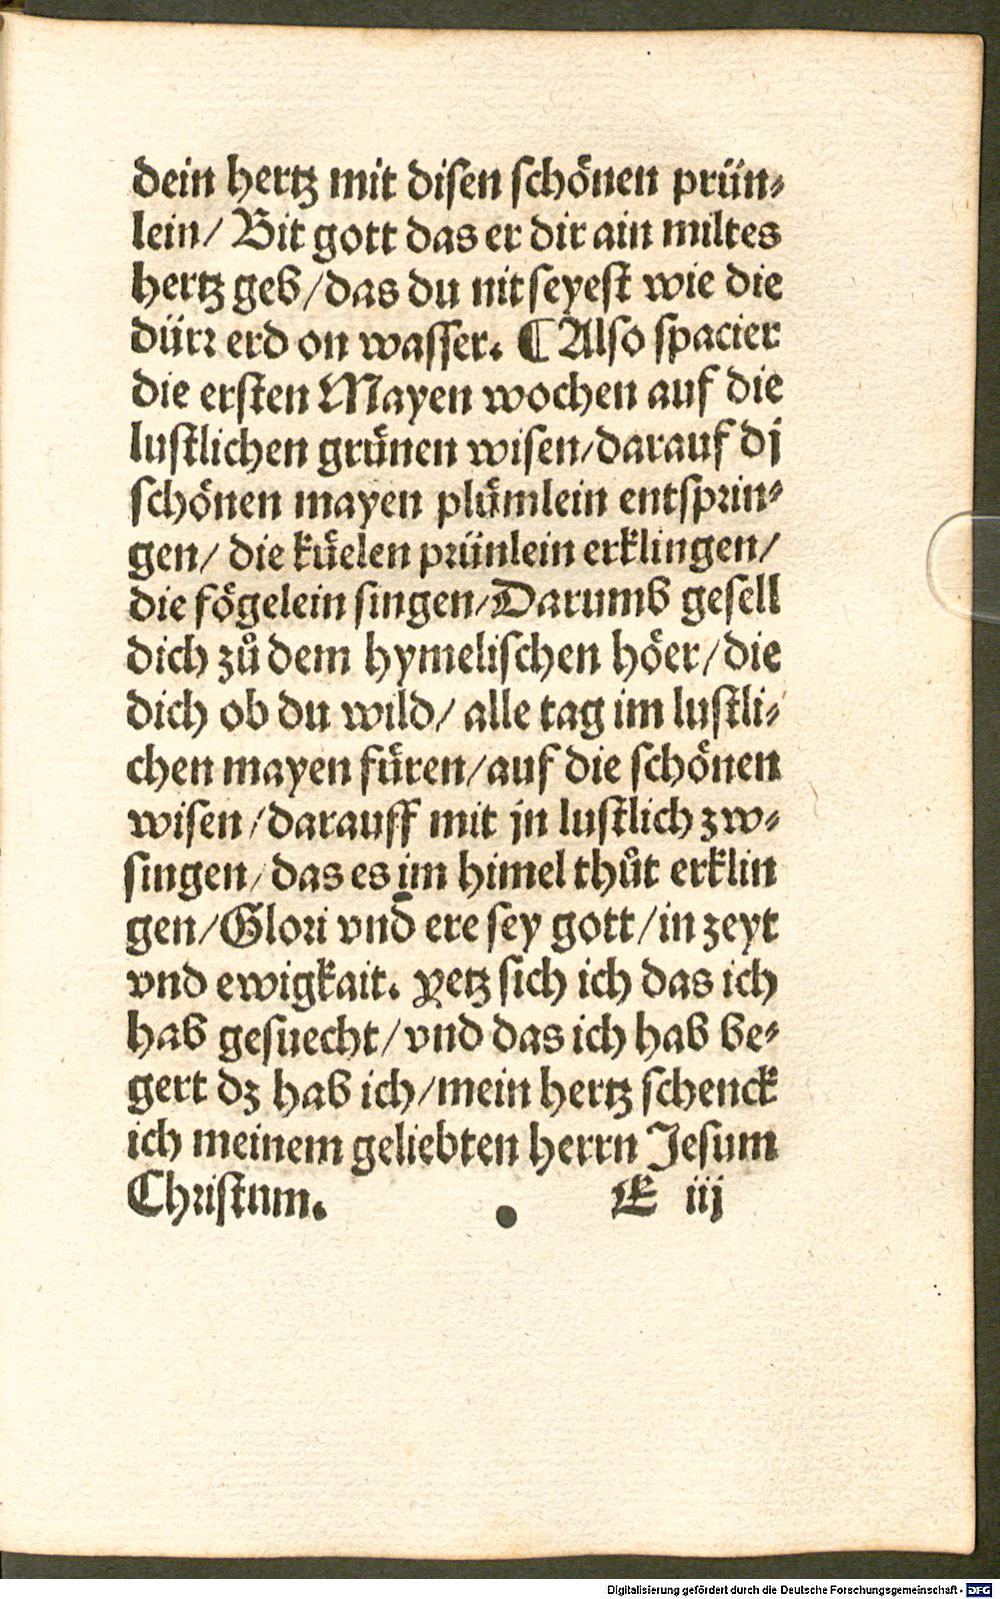 dein hertz mit disen schönen prün⸗
lein/ Bit gott das er dir ain miltes
hertz geb/das du nit seyest wie die
dürꝛ erd on wasser. ¶ Also spacier
die ersten Mayen wochen auf die
lustlichen grůnen wisen/darauf dj
schönen mayen plůmlein entsprin⸗
gen/ die kůelen prünlein erklingen/
die fögelein singen/Darumb gesell
dich zů dem hymelischen höer/die
dich ob du wild/ alle tag im lustli⸗
chen mayen fůren/auf die schönen
wisen/darauff mit jn lustlich zw⸗
singen/das es im himel thůt erklin
gen/Glori vnd ere sey gott/in zeyt
vnd ewigkait. Yetz sich ich das ich
hab gesuecht/vnd das ich hab be⸗
gert dz hab ich/mein hertz schenck
ich meinem geliebten herrn Jesum
Christum. E iij
Digitalisierung gefördert durch die Deutsche Forschungsgemeinschaft - DFG